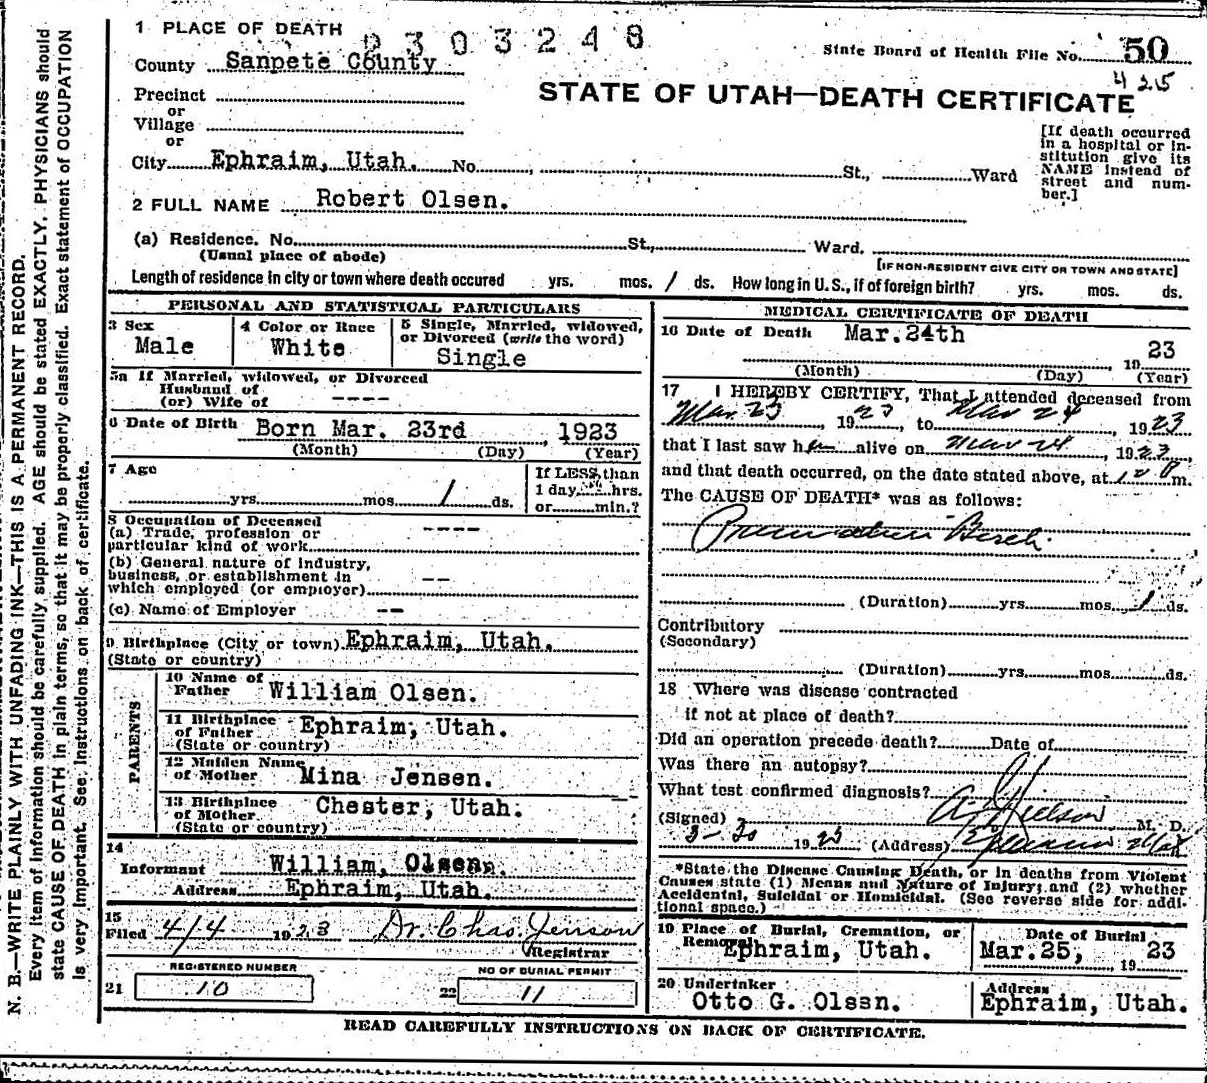 N. B.—WRITE PLAINLY WITH UNFADING INK—THIS IS A PERMANENT RECORD.
Every item of information should be carefully supplied. AGE should be stated EXACTLY. PHYSICIANS should
state CAUSE OF DEATH in plain terms, so that it may be properly classified. Exact statement of OCCUPATION
is very important. See instructions on back of certificate.
1 PLACE OF DEATH
2303248
State Board of Health File No. 50
425
County Sanpete County
STATE OF UTAH—DEATH CERTIFICATE
Precinct
or
Village
or
City Ephraim, Utah. No. St., Ward
[If death occurred
in a hospital or in-
stitution give its
NAME instead of
street and num-
ber.]
2 FULL NAME Robert Olsen.
(a) Residence. No. St., Ward.
(Usual place of abode)
[IF NON-RESIDENT GIVE CITY OR TOWN AND STATE]
Length of residence in city or town where death occured yrs. mos. 1 ds. How long in U. S., if of foreign birth? yrs. mos. ds.
PERSONAL AND STATISTICAL PARTICULARS
3 Sex
Male
4 Color or Race
White
5 Single, Married, widowed,
or Divorced (write the word)
Single
5a If Married, widowed, or Divorced
Husband of
(or) Wife of ----
6 Date of Birth Born Mar. 23rd, 1923
(Month) (Day) (Year)
7 Age
yrs. mos. 1 ds.
If LESS than
1 day, hrs.
or min.?
8 Occupation of Deceased
(a) Trade, profession or
particular kind of work ----
(b) General nature of Industry,
business, or establishment in
which employed (or employer) --
(c) Name of Employer --
9 Birthplace (City or town) Ephraim, Utah.
(State or country)
PARENTS
10 Name of
Father William Olsen.
11 Birthplace
of Father Ephraim, Utah.
(State or country)
12 Maiden Name
of Mother Mina Jensen.
13 Birthplace
of Mother Chester, Utah.
(State or country)
14
Informant William, Olsen.
Address Ephraim, Utah.
15
Filed 4/4 1923 Dr. Chas. Jenson
Registrar
REGISTERED NUMBER
21 10
NO OF BURIAL PERMIT
22 11
MEDICAL CERTIFICATE OF DEATH
16 Date of Death Mar. 24th
19 23
(Month) (Day) (Year)
17 I HEREBY CERTIFY, That I attended deceased from
Mar. 23, 1923, to Mar 24, 1923
that I last saw h alive on Mar 24, 1923,
and that death occurred, on the date stated above, at m.
The CAUSE OF DEATH* was as follows:
Premature Birth
(Duration) yrs. mos. 1 ds.
Contributory
(Secondary)
(Duration) yrs. mos. ds.
18 Where was disease contracted
if not at place of death?
Did an operation precede death? Date of
Was there an autopsy?
What test confirmed diagnosis?
(Signed) A. J. Nielson M. D.
3-30 1923 (Address) Ephraim Utah
*State the Disease Causing Death, or in deaths from Violent
Causes state (1) Means and Nature of Injury; and (2) whether
Accidental, Suicidal or Homicidal. (See reverse side for addi-
tional space.)
19 Place of Burial, Cremation, or
Removal
Ephraim, Utah.
Date of Burial
Mar. 25, 19 23
20 Undertaker
Otto G. Olssn.
Address
Ephraim, Utah.
READ CAREFULLY INSTRUCTIONS ON BACK OF CERTIFICATE.